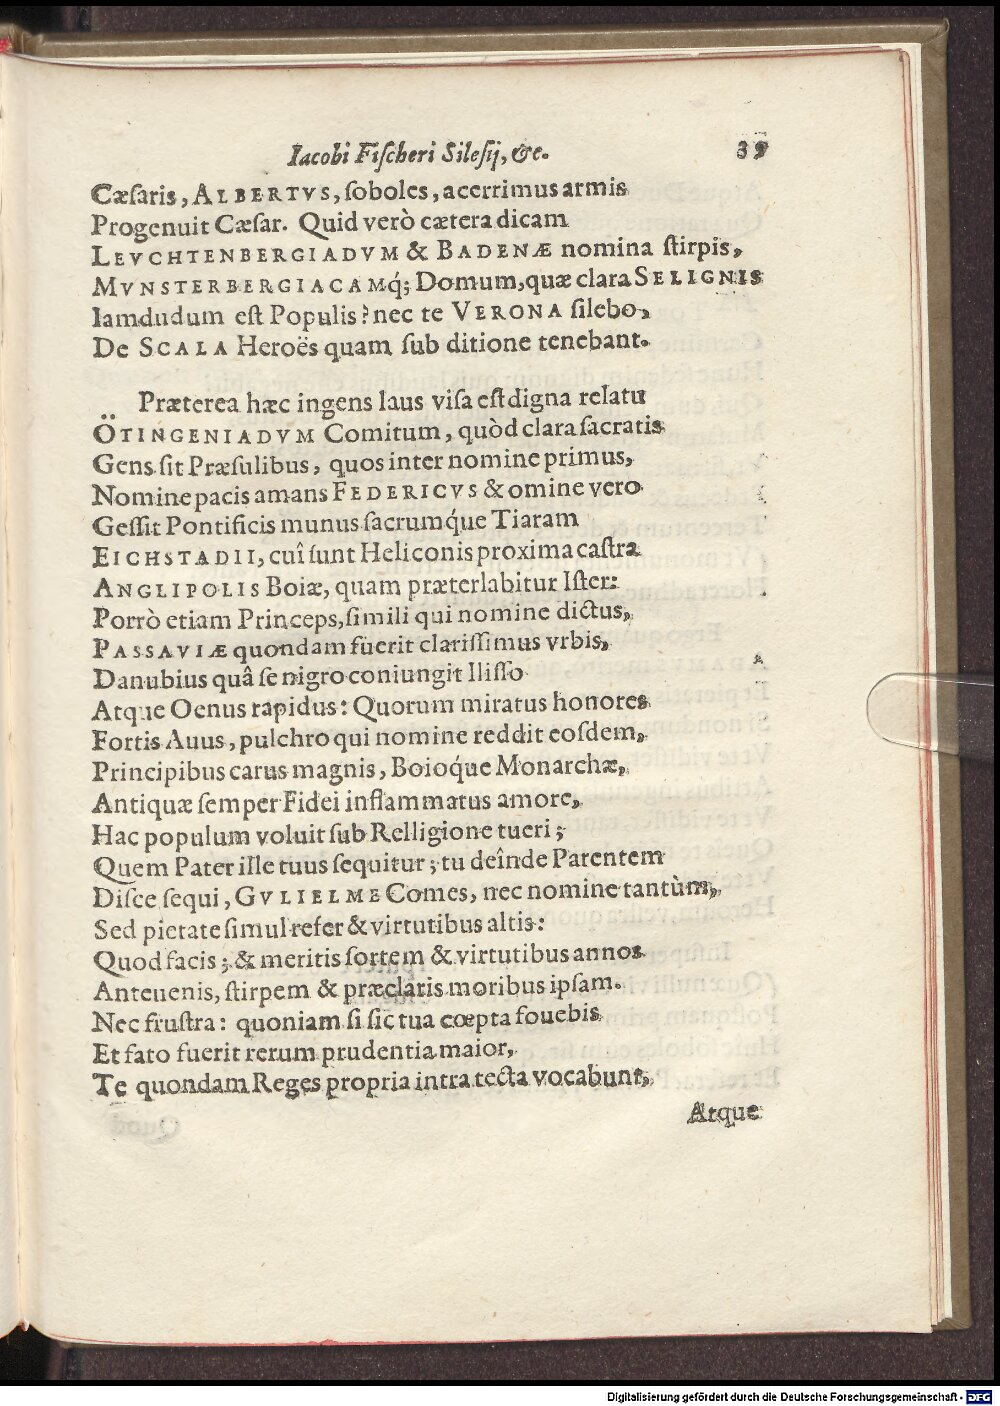 Iacobi Fiſcheri Sileſij, &c. 39
Cæſaris, ALBERTVS, ſoboles, acerrimus armis
Progenuit Cæſar. Quid verò cætera dicam
LEVCHTENBERGIADVM & BADENÆ nomina ſtirpis,
MVNSTERBERGIACAMq́; Domum, quæ clara SELIGNIS
Iamdudum eſt Populis? nec te VERONA ſilebo,
De SCALA Heroës quam ſub ditione tenebant.
Præterea hæc ingens laus viſa eſt digna relatu
ÖTINGENIADVM Comitum, quòd clara ſacratis
Gens ſit Præſulibus, quos inter nomine primus,
Nomine pacis amans FEDERICVS & omine vero
Geſſit Pontificis munus ſacrumq́ue Tiaram
EICHSTADII, cuî ſunt Heliconis proxima caſtra
ANGLIPOLIS Boiæ, quam præterlabitur Iſter:
Porrò etiam Princeps, ſimili qui nomine dictus,
PASSAVIÆ quondam fuerit clariſſimus vrbis,
Danubius quâ ſe nigro coniungit Iliſſo
Atque Oenus rapidus: Quorum miratus honores
Fortis Auus, pulchro qui nomine reddit eoſdem,
Principibus carus magnis, Boioq́ue Monarchæ,
Antiquæ ſemper Fidei inflammatus amore,
Hac populum voluit ſub Relligione tueri;
Quem Pater ille tuus ſequitur; tu deînde Parentem
Diſce ſequi, GVLIELME Comes, nec nomine tantùm,
Sed pietate ſimul refer & virtutibus altis:
Quod facis; & meritis ſortem & virtutibus annos
Anteuenis, ſtirpem & præclaris moribus ipſam.
Nec fruſtra: quoniam ſi ſic tua cœpta fouebis
Et fato fuerit rerum prudentia maior,
Te quondam Reges propria intra tecta vocabunt,
Atque
Digitalisierung gefördert durch die Deutsche Forschungsgemeinschaft - DFG